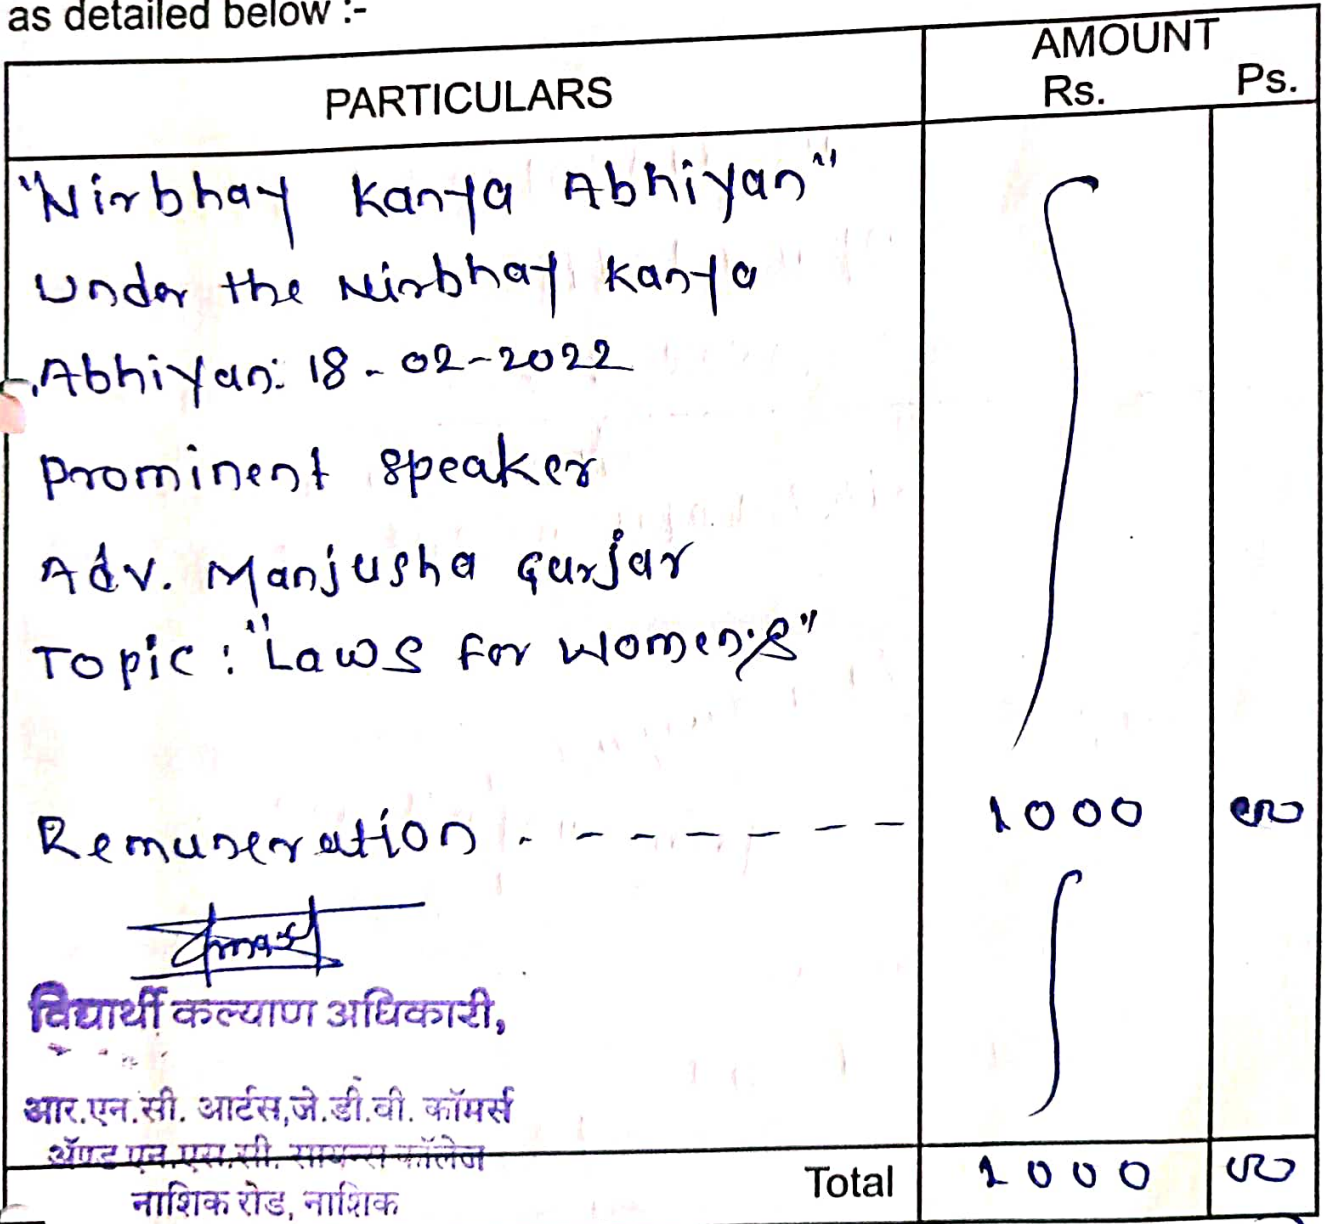 as detailed below :-
PARTICULARS
AMOUNT
Rs. Ps.
"Nirbhay Kanya Abhiyan"
Under the Nirbhay Kanya
Abhiyan: 18-02-2022
Prominent speaker
Adv. Manjusha Gurjar
Topic : "Laws for women's"
Remuneration - - - - - - - 1000 00
विद्यार्थी कल्याण अधिकारी,
आर.एन.सी. आर्टस,जे.डी.बी. कॉमर्स
ॲण्ड एन.एस.सी. सायन्स कॉलेज
नाशिक रोड, नाशिक
Total 1000 00